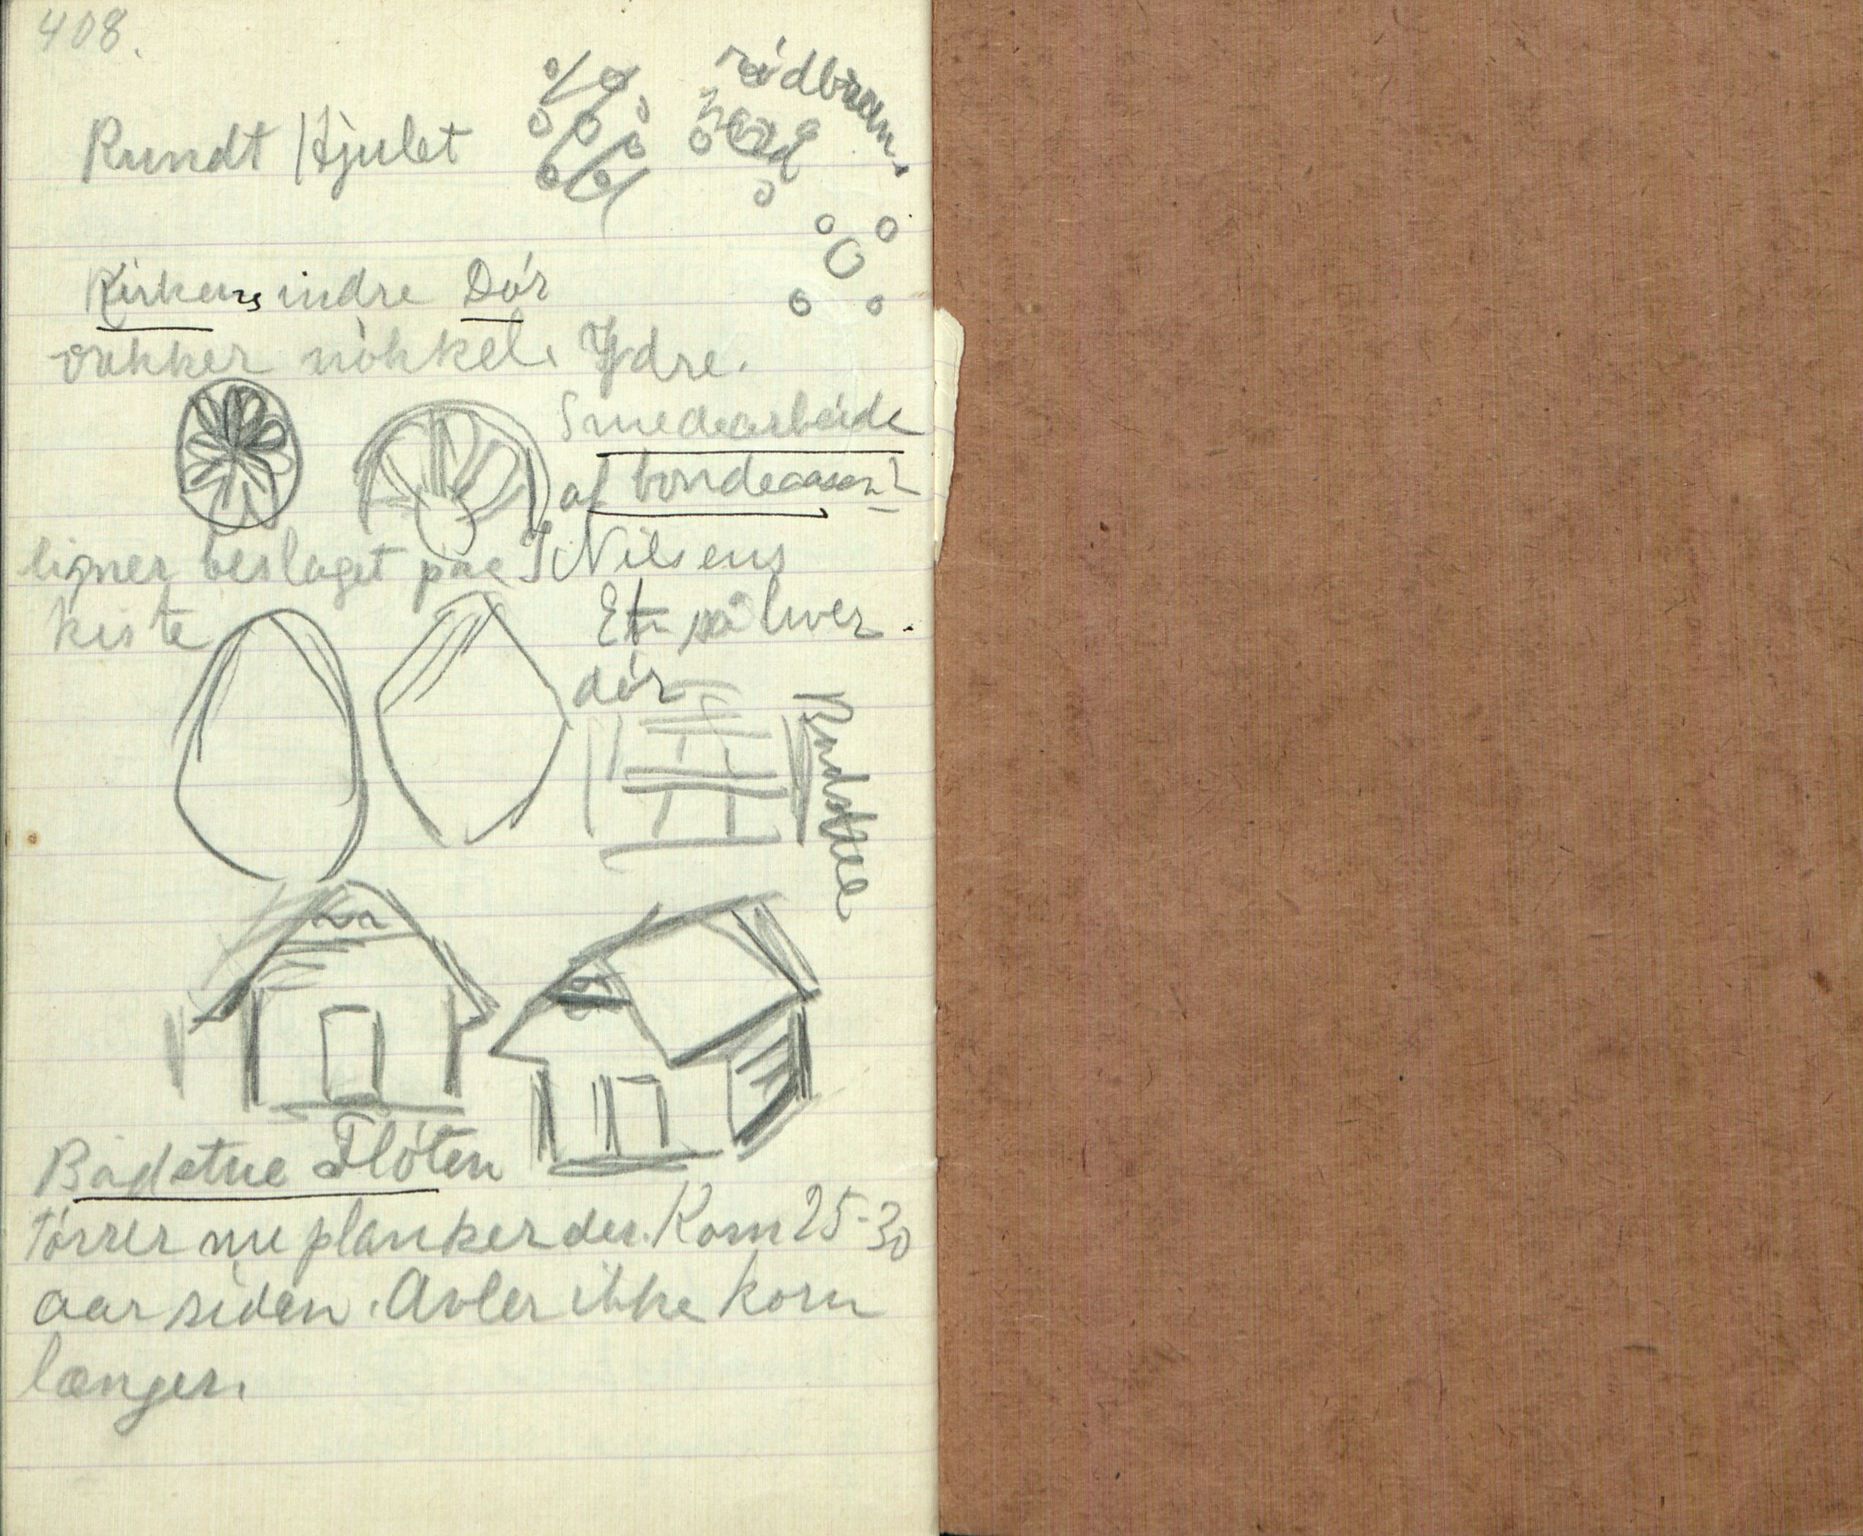 408.
rödbrun.
Rundt Hjulet
Kirkens indre Dör
vakker nökkel. Ydre.
Smedearbeide
af bonde
ligner beslaget paa Nilsens
kiste
Et på hver
dör
Badstue Flöten
Törrer nu planker der. Korn 25-30
aar siden. Avler ikke korn
længer.